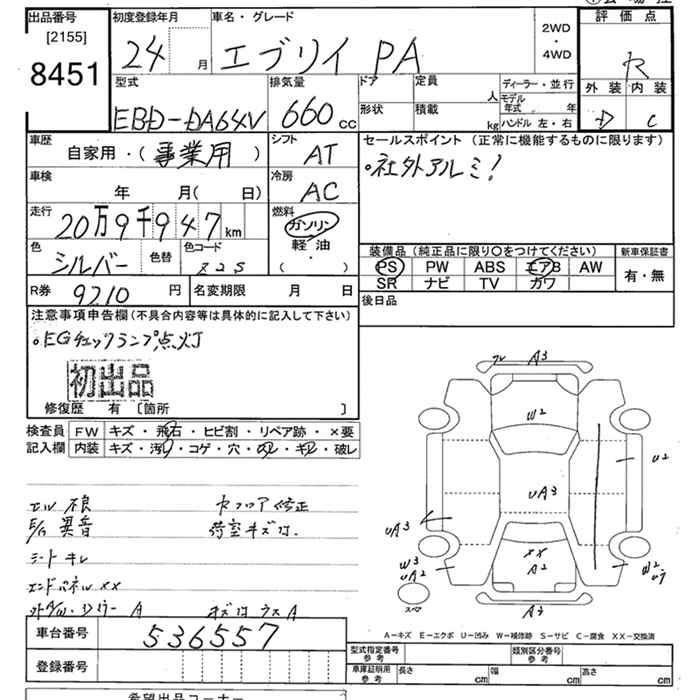 出品番号 初度登録年月 車名・グレード 評価点
[2155] 8451 24 月 エブリイ PA 2WD・4WD
型式 排気量 ドア 定員 人 ディーラー・並行 外装 内装
EBD-DA64V 660cc 形状 積載 kg モデル年式 年 D C
ハンドル 左・右
車歴 自家用・(事業用) シフト AT セールスポイント (正常に機能するものに限ります)
車検 年 月( 日) 冷房 AC 。社外アルミ!
走行 20万9千947km 燃料 ガソリン・軽油・( )
色 シルバー 色替 色コード Z2S 装備品(純正品に限り○をつけてください) 新車保証書
PS PW ABS エアB AW 有・無
SR ナビ TV カワ
R券 9210円 名変期限 月 日 後日品
注意事項申告欄(不具合内容等は具体的に記入して下さい)
。EGチェックランプ点灯
初出品
修復歴 有 [箇所 ]
検査員 FW キズ・飛石・ヒビ割・リペア跡・×要
記入欄 内装 キズ・汚れ・コゲ・穴・・キレ・破レ
エル 不良 セフロア 修正
E/G 異音 荷室キズ大.
シート キレ
エンドパネル XX
A
車台番号 536557
登録番号
A3
W2
U2
UA3
UA3
XX
A2
W3
UA2
W2
スペア
A3
A-キズ E-エクボ U-凹み W-補修跡 S-サビ C-腐食 XX-交換済
型式指定番号 参考 類別区分番号 参考
車庫証明用 参考 長さ cm 幅 cm 高さ cm
希望出品コーナー